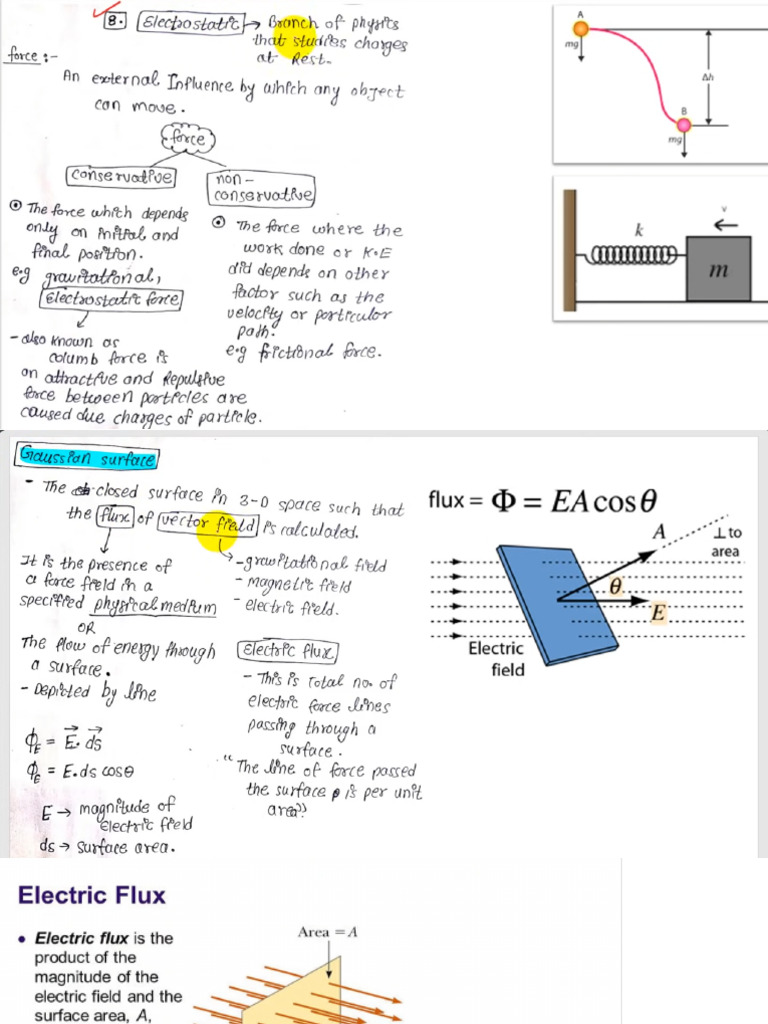 8. Electrostatic → Branch of physics
that studies charges
at Rest.
force :-
An external Influence by which any object
can move.
force
conservative
non-
conservative
The force which depends
only on initial and
final position.
e.g gravitational,
Electrostatic force
- also known as
columb force is
an attractive and Repulsive
force between particles are
caused due charges of particle.
The force where the
work done or K.E
did depends on other
factor such as the
velocity or particular
path.
e.g frictional force.
A
mg
Δh
B
mg
k
v
m
Gaussian surface
- The closed surface in 3-D space such that
the flux of vector field is calculated.
It is the presence of
a force field in a
specified physical medium
OR
The flow of energy through
a surface.
- Depicted by line
- gravitational field
- magnetic field
- electric field.
Electric flux
- This is total no. of
electric force lines
passing through a
surface.
"The line of force passed
the surface is per unit
area"
ϕE = E⃗. ds⃗
ϕE = E.ds cosθ
E → magnitude of
electric field
ds → surface area.
flux = Φ = EA cos θ
A
⊥ to
area
θ
E
Electric
field
Electric Flux
• Electric flux is the
product of the
magnitude of the
electric field and the
surface area, A,
Area = A